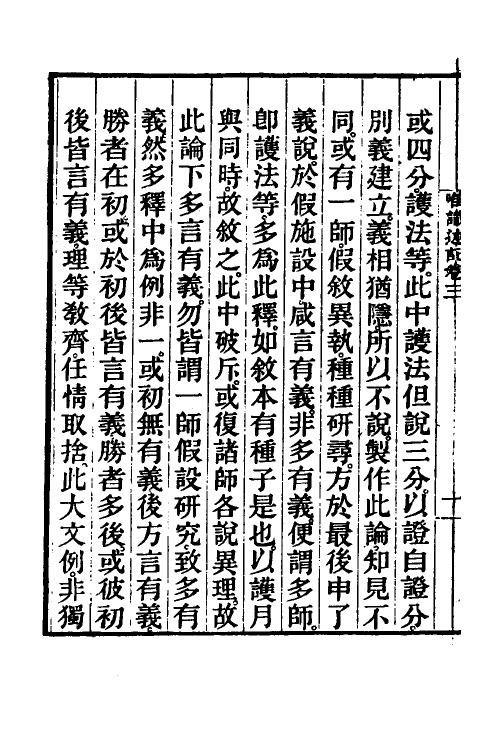 唯識述記卷三
十一
或四分。護法等。此中護法但說三分。以證自證分。
別義建立。義相猶隱。所以不說。製作此論。知見不
同。或有一師。假敘異執。種種研尋。方於最後申了
義說。於假施設中。咸言有義。非多有義。便謂多師。
卽護法等多爲此釋。如敘本有種子是也。以護月
與同時。故敘之。此中破斥。或復諸師各說異理。故
此論下多言有義。勿皆謂一師假設研究。致多有
義。然多釋中爲例非一。或初無有義後方言有義。
勝者在初。或於初後皆言有義勝者多後。或彼初
後皆言有義。理等敎齊。任情取捨。此大文例。非獨